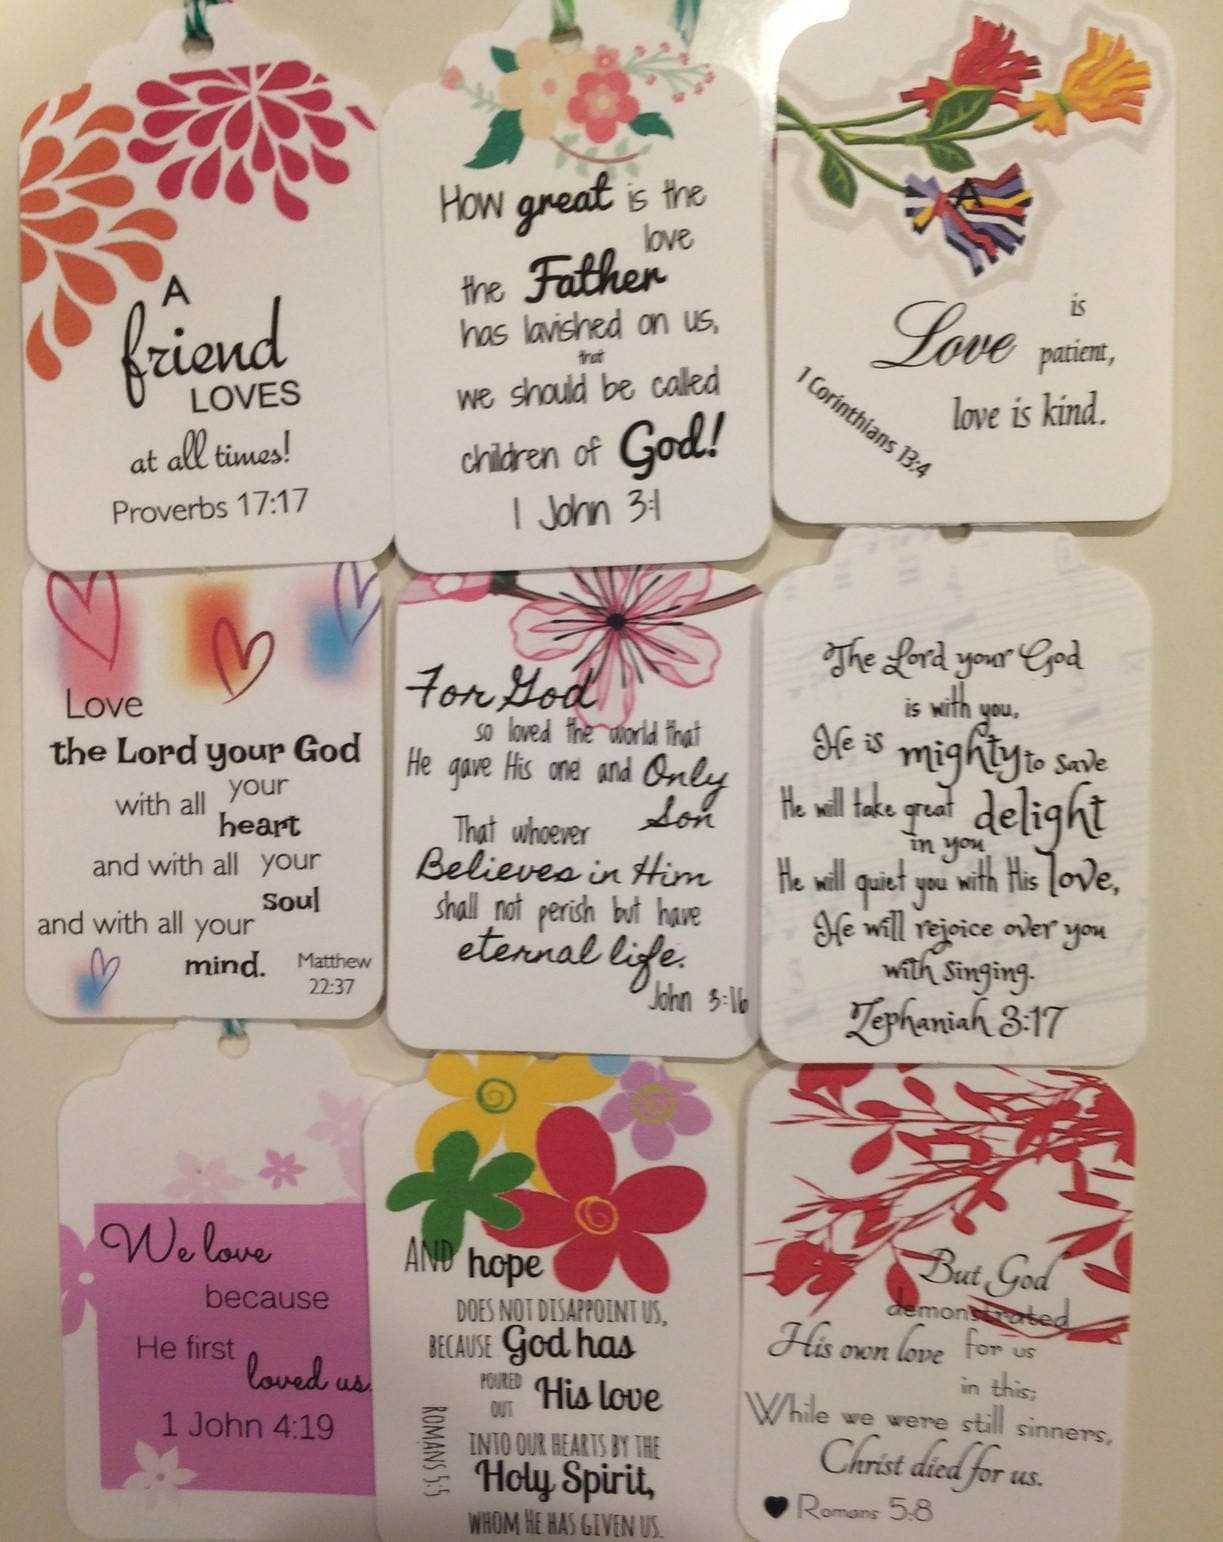 A
friend
LOVES
at all times!
Proverbs 17:17
How great is the
love
the Father
has lavished on us,
that
we should be called
children of God!
1 John 3:1
A
Love is
patient,
love is kind.
1 Corinthians 13:4
Love
the Lord your God
with all your
heart
and with all your
soul
and with all your
mind.
Matthew
22:37
For God
so loved the world that
He gave His one and Only
Son
That whoever
Believes in Him
shall not perish but have
eternal life.
John 3:16
The Lord your God
is with you,
He is mighty to save
He will take great delight
in you
He will quiet you with His love,
He will rejoice over you
with singing.
Zephaniah 3:17
We love
because
He first
loved us
1 John 4:19
AND hope
DOES NOT DISAPPOINT US,
BECAUSE God has
POURED
OUT His love
INTO OUR HEARTS BY THE
Holy Spirit,
WHOM HE HAS GIVEN US.
ROMANS 5:5
But God
demonstrated
His own love for us
in this;
While we were still sinners,
Christ died for us.
Romans 5:8